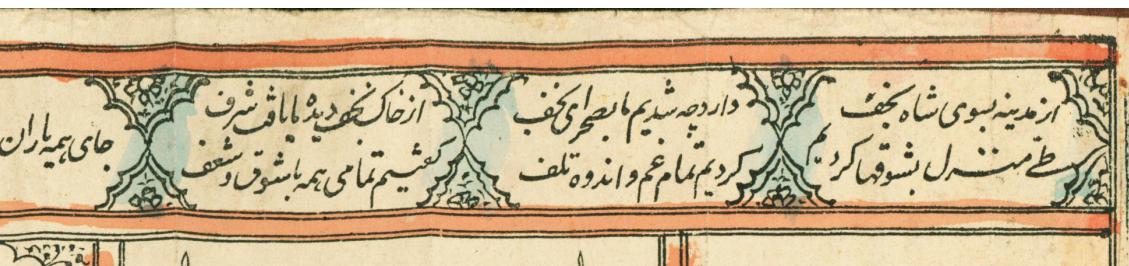 از مدینه بسوی شاه نجف
طی منزل بشوقها کردیم
وارد چه شدیم ما بصحرای نجف
کردیم تمام غم و اندوه تلف
از خاک نجف دیده ما یافت شرف
گفتیم تمامی همه با شوق و شعف
جای همه یاران